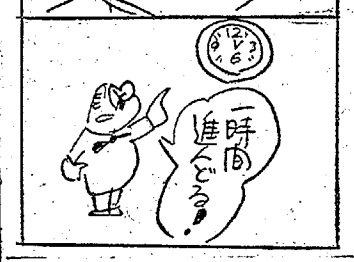 12
9 3
6
一時間
進んどる!